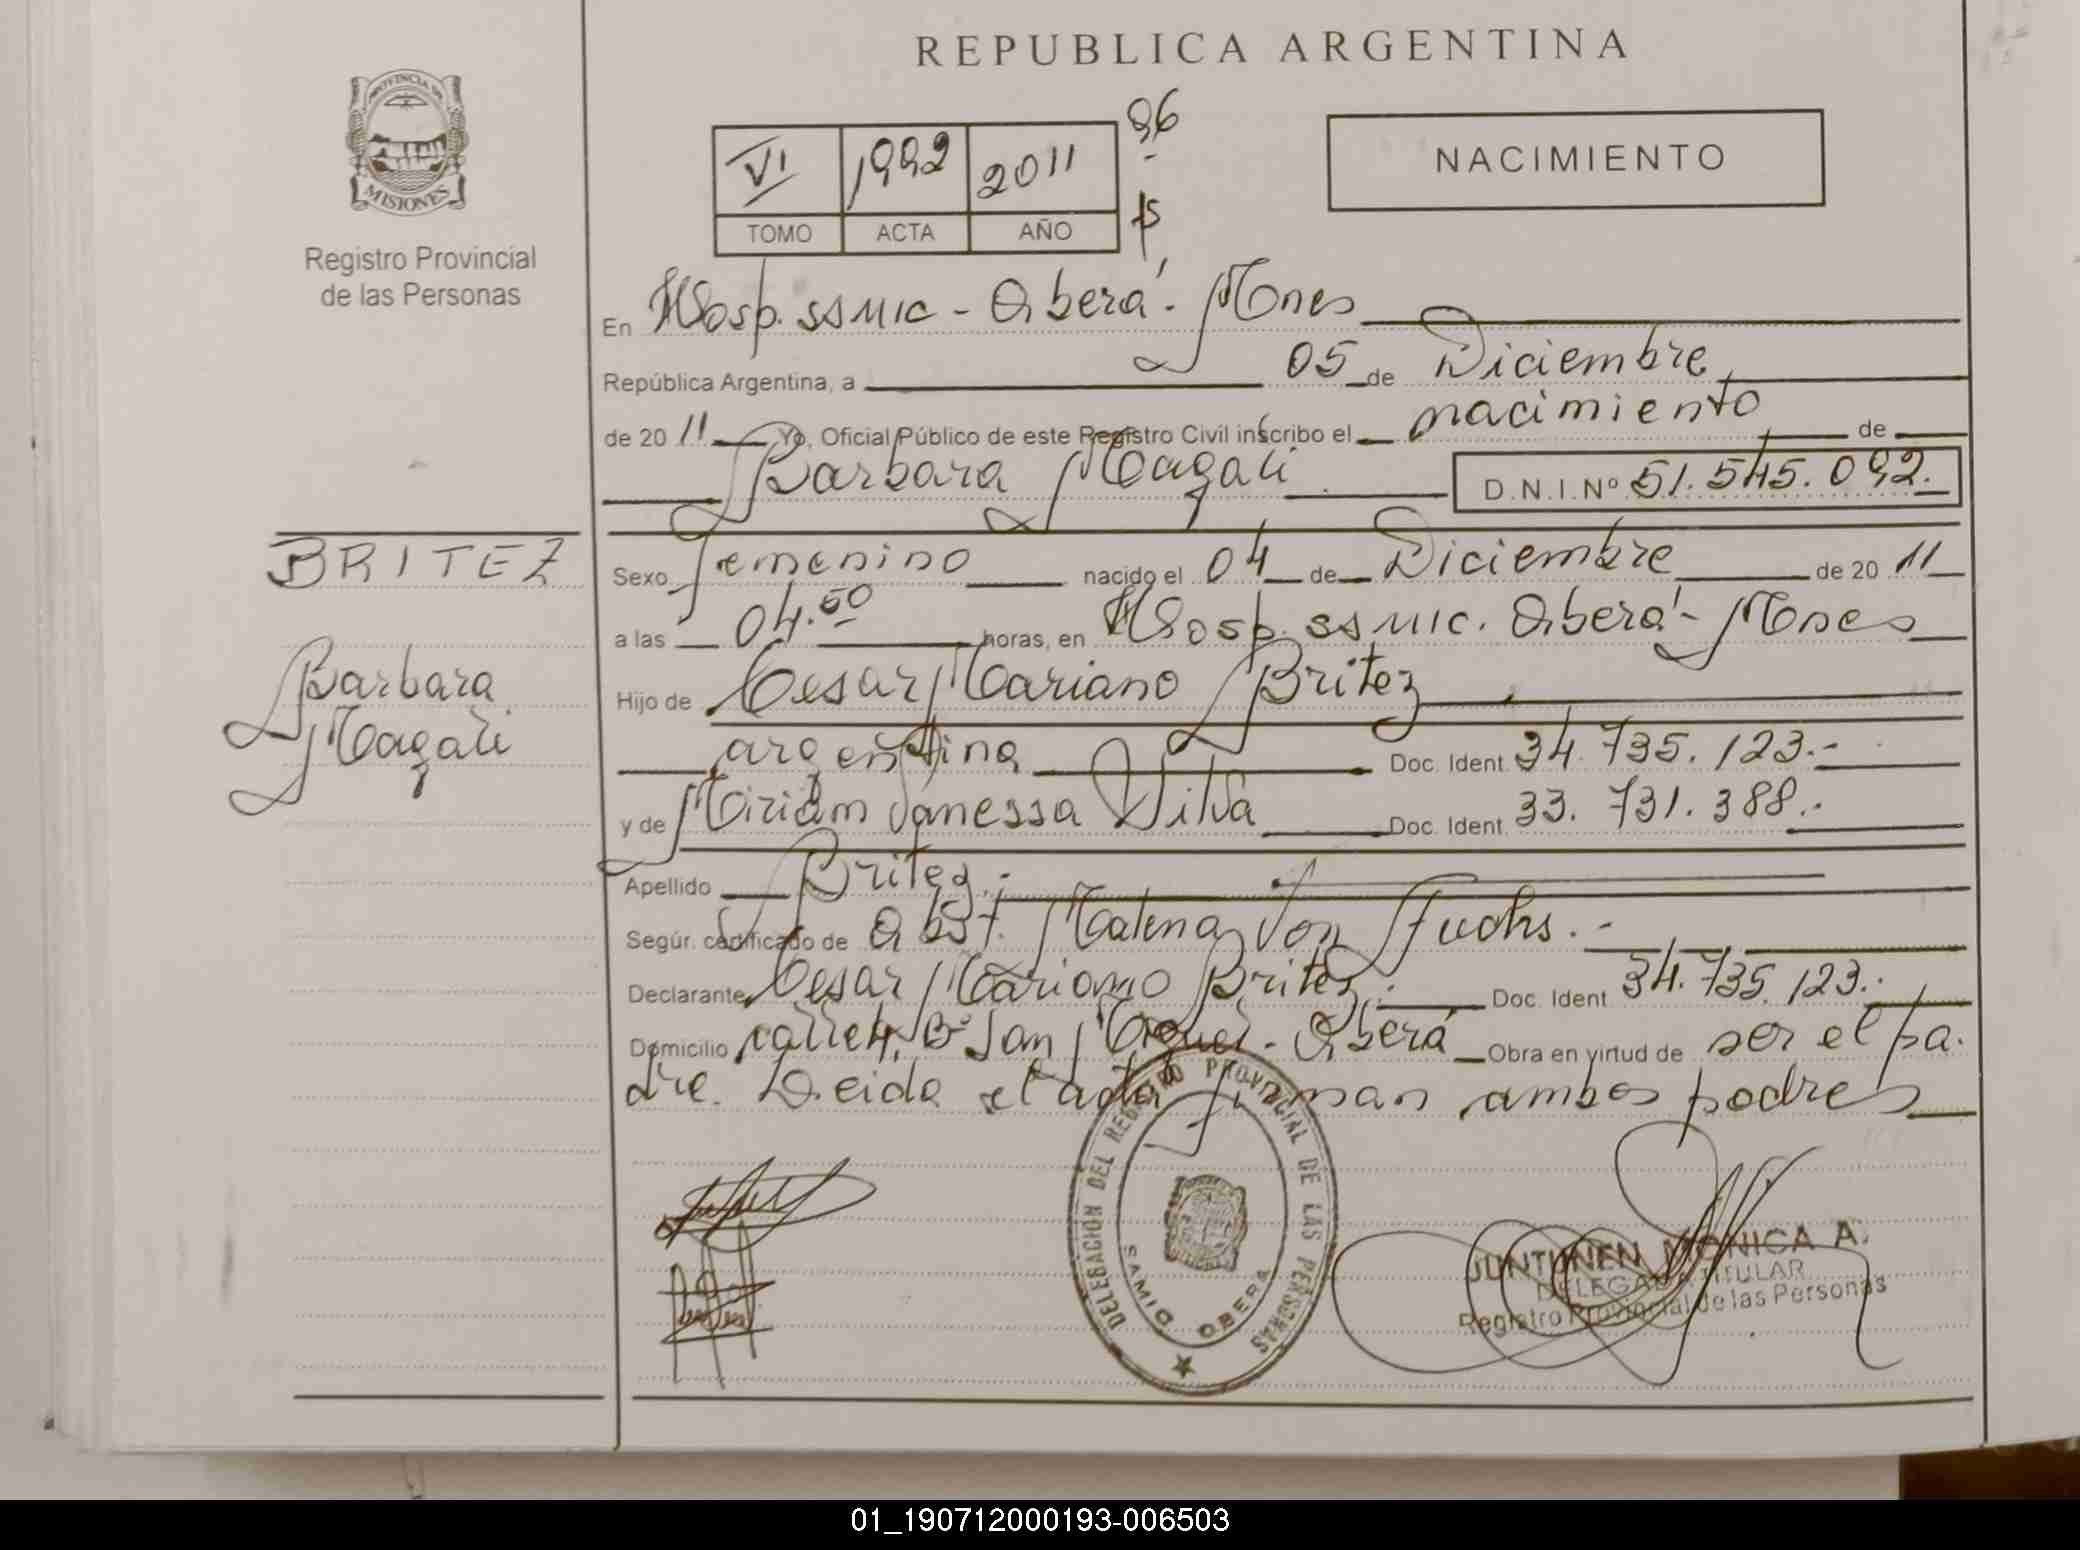 REPUBLICA ARGENTINA
PROVINCIA DE
MISIONES
Registro Provincial
de las Personas
VI 1992 2011 96
TOMO ACTA AÑO fs
NACIMIENTO
En Hosp. SSMIC - Oberá - Mnes
República Argentina, a 05 de Diciembre
de 20 11 Yo, Oficial Público de este Registro Civil inscribo el nacimiento de
Barbara Magali D.N.I.Nº 51.545.092.
BRITEZ
Barbara
Magali
Sexo Femenino nacido el 04 de Diciembre de 20 11
a las 04.50 horas, en Hosp. SSMIC. Oberá - Mnes
Hijo de Cesar Mariano Britez
argentina Doc. Ident. 34.735.123.-
y de Miriam Vanessa Silva Doc. Ident. 33.731.388.-
Apellido Britez.-
Según certificado de Obst. Malena Von Fuchs.-
Declarante Cesar Mariano Britez.- Doc. Ident. 34.735.123.-
Domicilio calle 4, Bº San Miguel - Oberá Obra en virtud de ser el pa.
dre. Leida el acta firman ambos padres
DELEGACION DEL REGISTRO PROVINCIAL DE LAS PERSONAS
SAMIC OBERA
JUNTUNEN MONICA A.
DELEGADA TITULAR
Registro Provincial de las Personas
01_190712000193-006503